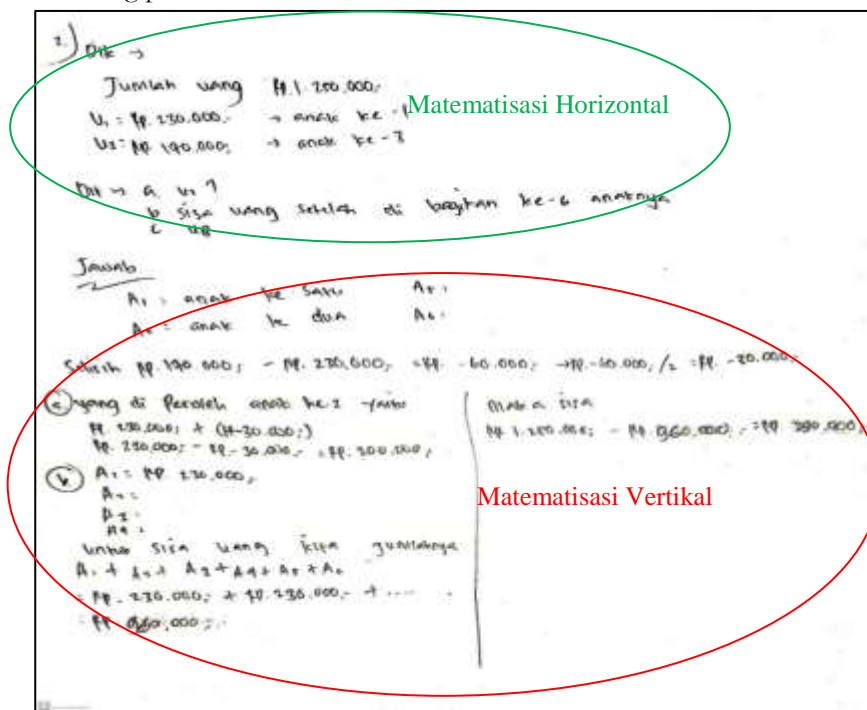 2) Dik →
Jumlah uang Rp. 1.250.000,-
U₁ = Rp. 230.000,- → anak ke-1
U₃ = Rp 170.000; → anak ke-3
Matematisasi Horizontal
Dit → a U₂?
b sisa uang setelah di bagikan ke-6 anaknya
c
Jawab
A₁ = anak ke satu A₅ =
A₂ = anak ke dua A₆ =
Selisih Rp. 170.000; - Rp. 230.000, = Rp. -60.000; → Rp. -60.000,/2 = Rp. -30.000,
a yang di Peroleh anak ke 2 yaitu
Rp 230.000; + (Rp-30.000;)
Rp. 230.000; - Rp. 30.000,- = Rp. 200.000,
b A₁ = Rp 230.000,
A₂ =
A₃ =
A₄ =
untuk sisa uang kita
A₁ + A₂ + A₃ + A₄ + A₅ + A₆
= Rp. 230.000; + Rp. 230.000,- + ....
= Rp. 860.000;
maka sisa
Rp 1.250.000; - Rp 860.000; = Rp 390.000,
Matematisasi Vertikal